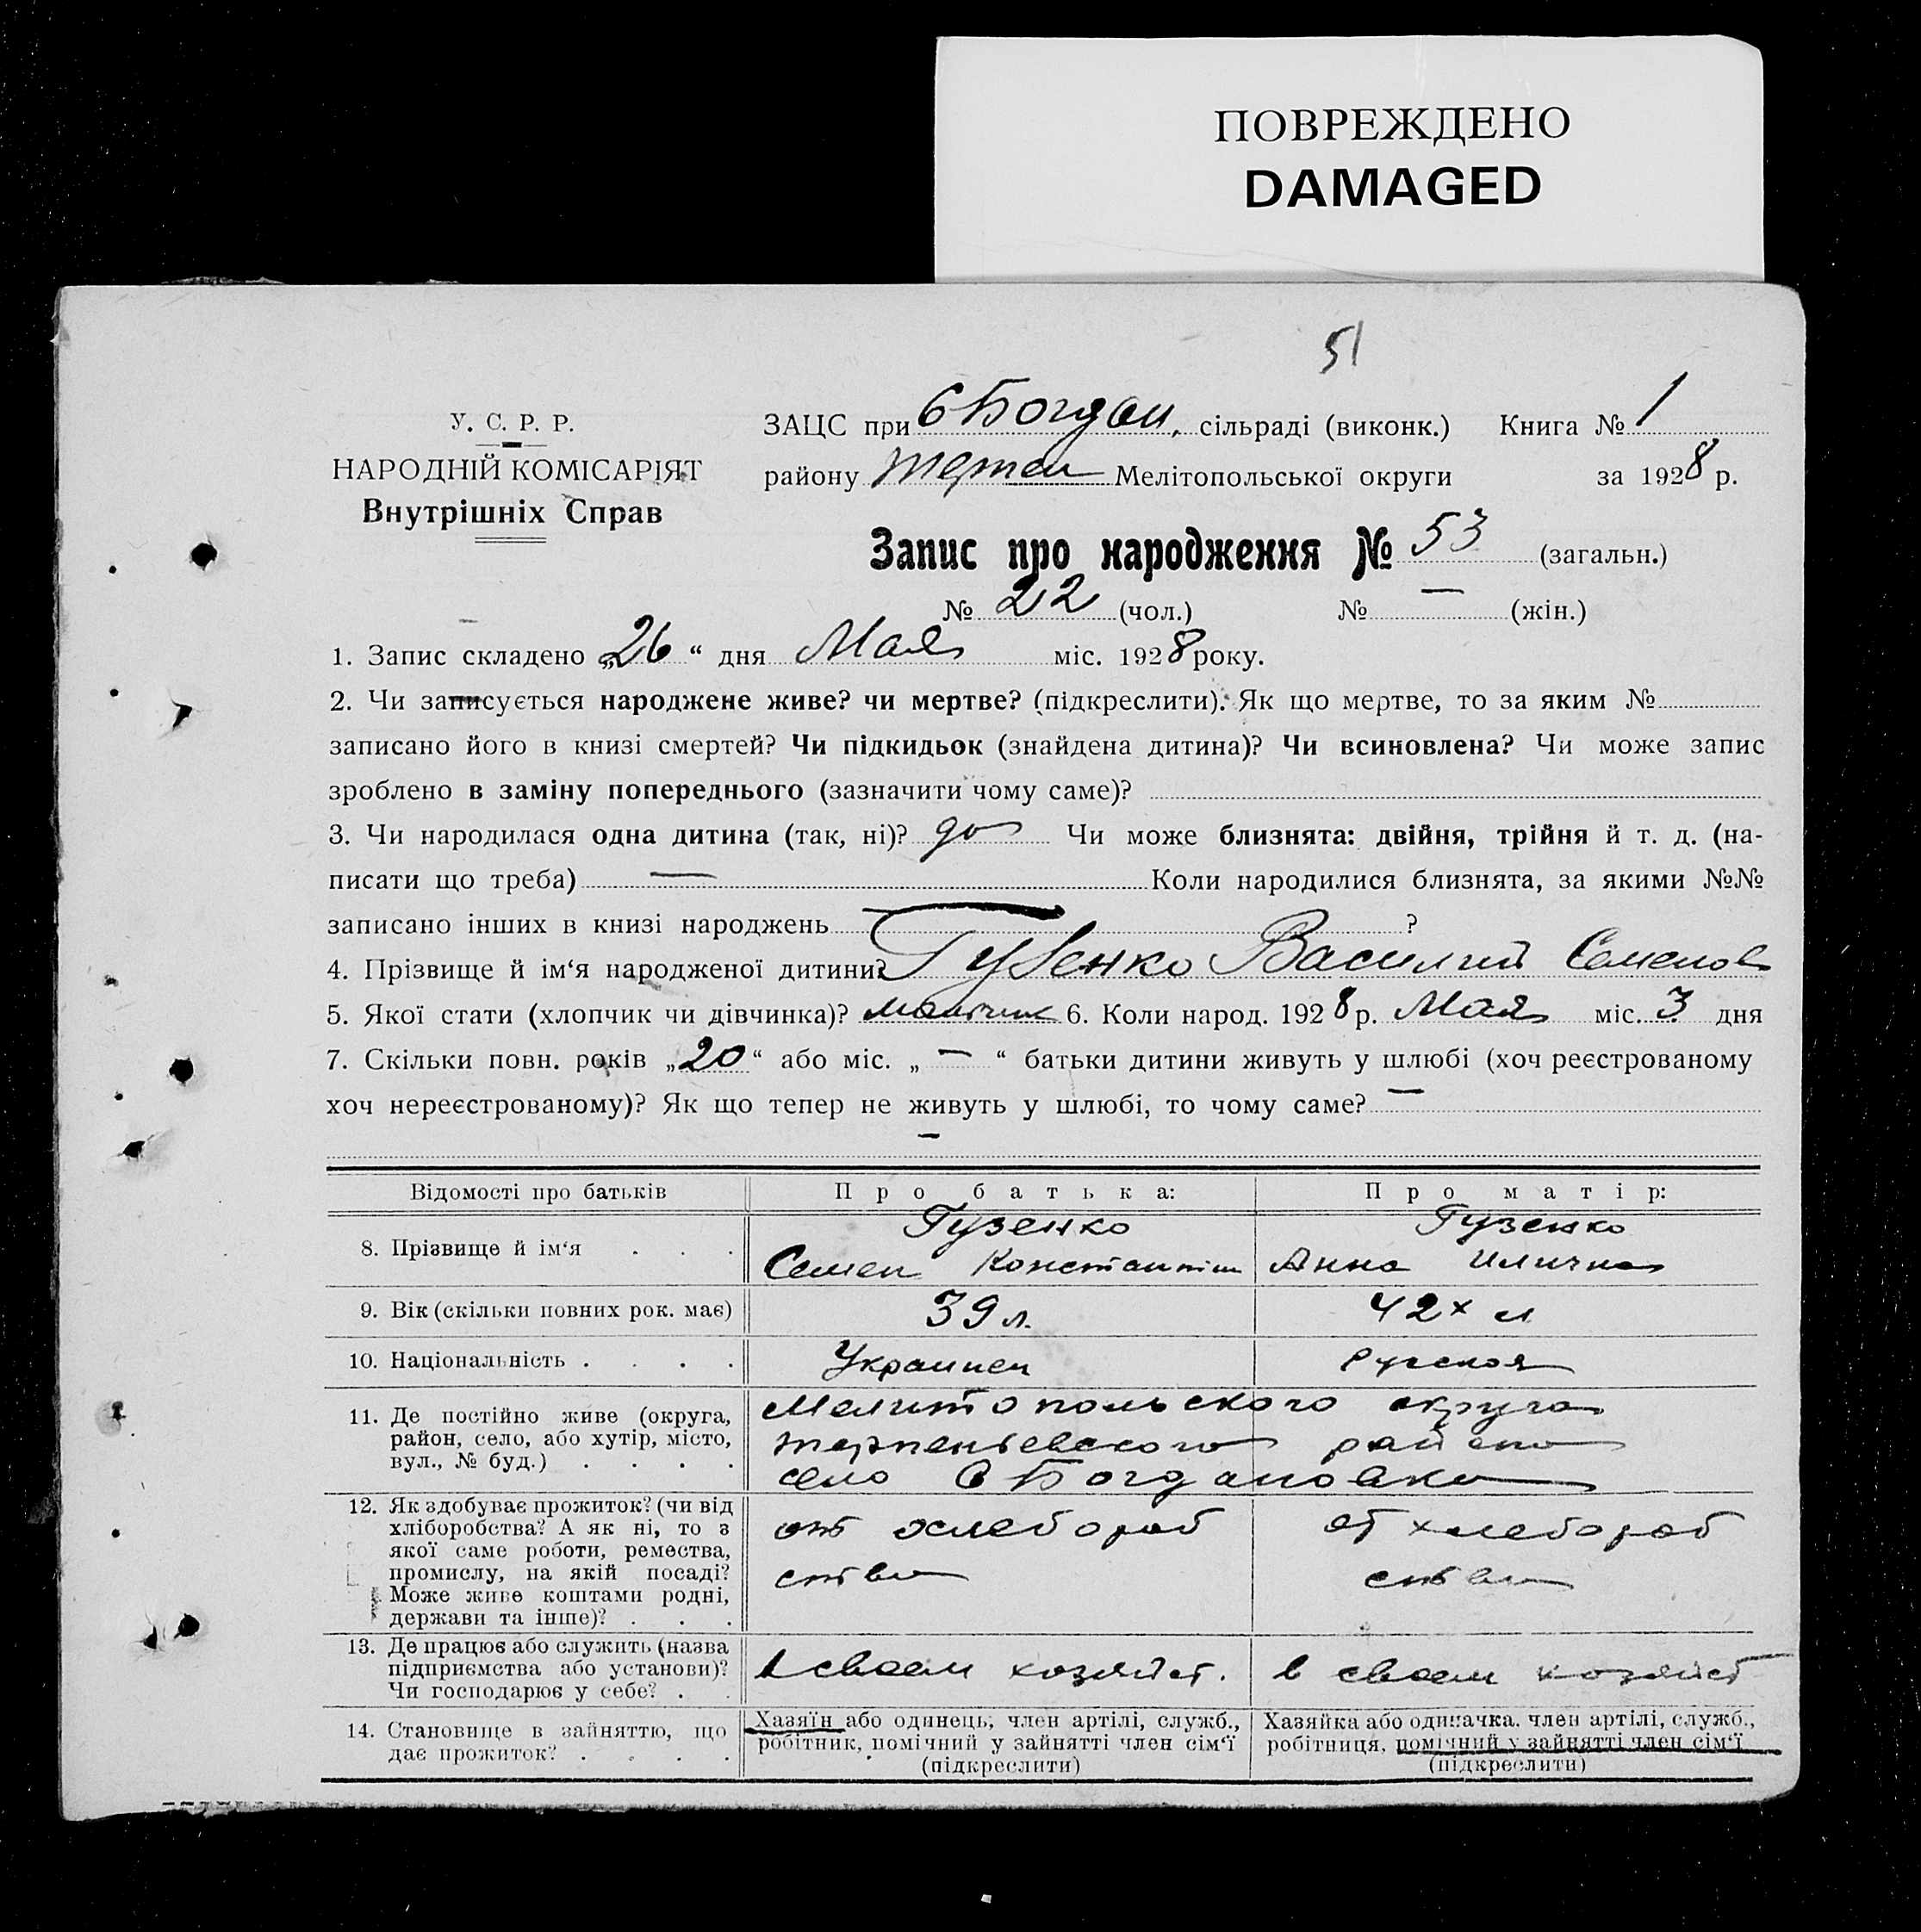 ПОВРЕЖДЕНО
DAMAGED
51
У. С. Р. Р.
НАРОДНІЙ КОМІСАРІЯТ
Внутрішніх Справ
ЗАЦС при Б Богдан. сільраді (виконк.) Книга № 1
району Терпен Мелітопольської округи за 1928 р.
Запис про народження № 53 (загальн.)
№ 22 (чол.) № — (жін.)
1. Запис складено „26“ дня Мая міс. 1928 року.
2. Чи записується народжене живе? чи мертве? (підкреслити). Як що мертве, то за яким №
записано його в книзі смертей? Чи підкидьок (знайдена дитина)? Чи всиновлена? Чи може запис
зроблено в заміну попереднього (зазначити чому саме)?
3. Чи народилася одна дитина (так, ні)? да Чи може близнята: двійня, трійня й т. д. (на-
писати що треба) — Коли народилися близнята, за якими №№
записано інших в книзі народжень — ?
4. Прізвище й ім‘я народженої дитини? Гузенко Василий Семенов
5. Якої стати (хлопчик чи дівчинка)? мальчик 6. Коли народ. 1928 р. Мая міс. 3 дня
7. Скільки повн. років „20“ або міс. „—“ батьки дитини живуть у шлюбі (хоч реєстрованому
хоч нереєстрованому)? Як що тепер не живуть у шлюбі, то чому саме? —
—
Відомості про батьків Про батька: Про матір:
8. Прізвище й ім‘я . . . Гузенко Семен Константин Гузенко Анна Илична
9. Вік (скільки повних рок. має) 39 л. 42х л
10. Національність . . . . Украинец Русская
11. Де постійно живе (округа, Мелитопольского округа
район, село, або хутір, місто, терпеньевского района
вул., № буд.) . . . . село Б Богдановка
12. Як здобуває прожиток? (чи від
хліборобства? А як ні, то з от хлебороб от хлебороб
якої саме роботи, ремества,
промислу, на якій посаді? ства ства
Може живе коштами родні,
держави та інше)? . . .
13. Де працює або служить (назва
підприємства або установи)? в своем хозяйст. в своем хозяйст
Чи господарює у себе? . .
14. Становище в зайняттю, що Хазяїн або одинець, член артілі, служб., Хазяйка або одиначка. член артілі, служб.,
дає прожиток? . . . . робітник, помічний у зайнятті член сім‘ї робітниця, помічний у зайнятті член сім‘ї
(підкреслити) (підкреслити)